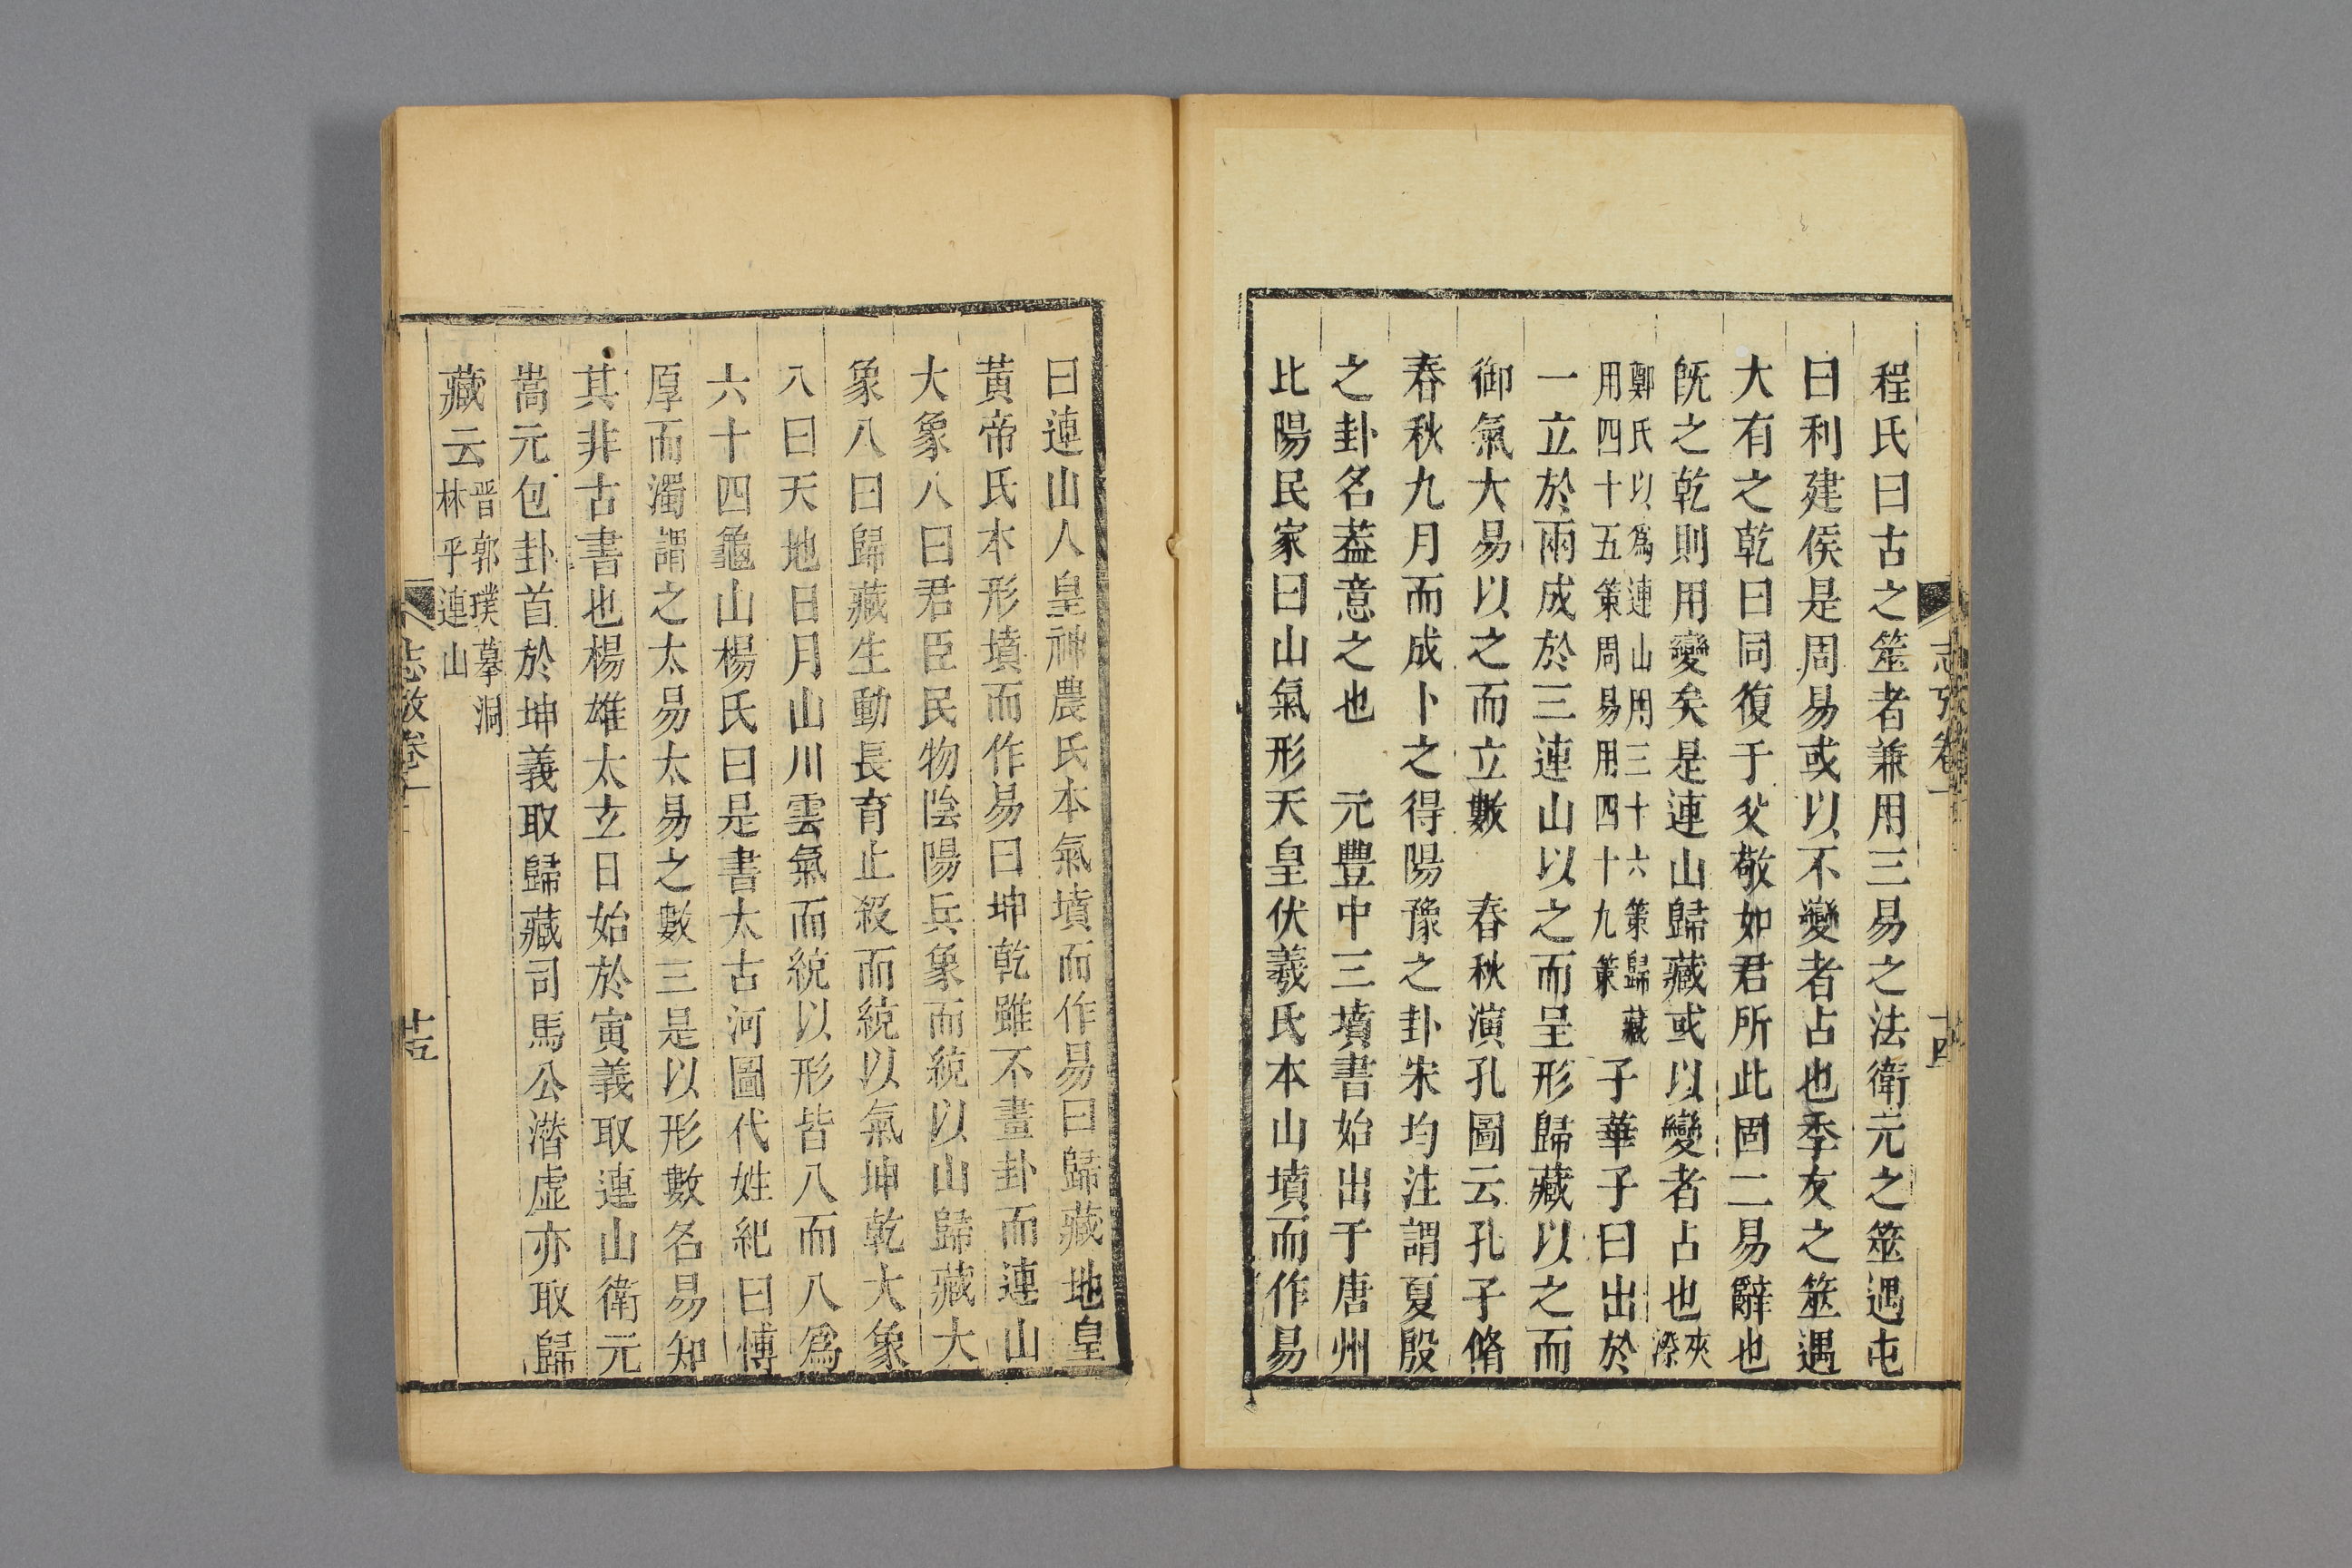 程氏曰古之筮者兼用三易之法衛元之筮遇屯
曰利建侯是周易或以不變者占也季友之筮遇
大有之乾曰同復于父敬如君所此固二易辭也
旣之乾則用變矣是連山歸藏或以變者占也夾漈
鄭氏以爲連山用三十六策歸藏
用四十五策周易用四十九策
子華子曰出於
一立於兩成於三連山以之而呈形歸藏以之而
御氣大易以之而立數　春秋演孔圖云孔子脩
春秋九月而成卜之得陽豫之卦宋均注謂夏殷
之卦名葢意之也　元豐中三墳書始出于唐州
比陽民家曰山氣形天皇伏羲氏本山墳而作易
志攷卷一
十四
曰連山人皇神農氏本氣墳而作易曰歸藏地皇
黃帝氏本形墳而作易曰坤乾雖不畫卦而連山
大象八曰君臣民物陰陽兵象而統以山歸藏大
象八曰歸藏生動長育止殺而統以氣坤乾大象
八曰天地日月山川雲氣而統以形皆八而八爲
六十四龜山楊氏曰是書太古河圖代姓紀曰愽
厚而濁謂之太易太易之數三是以形數名易知
其非古書也楊雄太玄日始於寅義取連山衛元
嵩元包卦首於坤義取歸藏司馬公潛虛亦取歸
藏云
晋郭璞摹洞
林乎連山
志攷卷一
十五